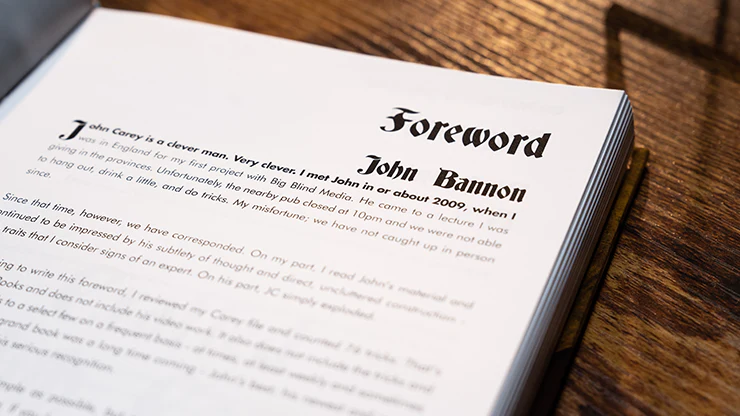 Foreword
John Bannon
John Carey is a clever man. Very clever. I met John in or about 2009, when I
was in England for my first project with Big Blind Media. He came to a lecture I was
giving in the provinces. Unfortunately, the nearby pub closed at 10pm and we were not able
to hang out, drink a little, and do tricks. My misfortune; we have not caught up in person
since.
Since that time, however, we have corresponded. On my part, I read John's material and
ontinued to be impressed by his subtlety of thought and direct, uncluttered construction -
traits that I consider signs of an expert. On his part, JC simply exploded.
ing to write this foreword, I reviewed my Carey file and counted 76 tricks. That's
Books and does not include his video work. It also does not include the tricks and
s to a select few on a frequent basis - at times, at least weekly and sometimes
grand book was a long time coming - John's best, his
is serious recognition.
mple as possible, but